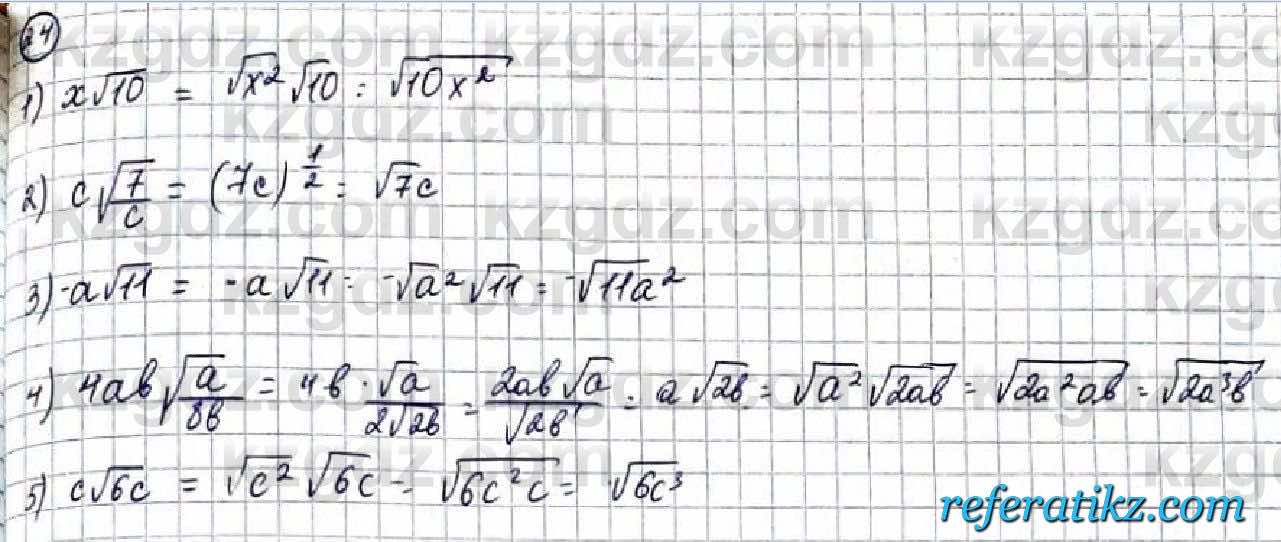 24
1) x√10 = √x² √10 = √10x²
2) c√7/c = (7c)^1/2 = √7c
3) -a√11 = -a√11 = -√a² √11 = -√11a²
4) 4ab√a/8b = 4b · √a/2√2b = 2ab√a/√2b = a√2b = √a² √2ab = √2a²ab = √2a³b
5) c√6c = √c² √6c = √6c²c = √6c³
kzgdz.com
referatikz.com